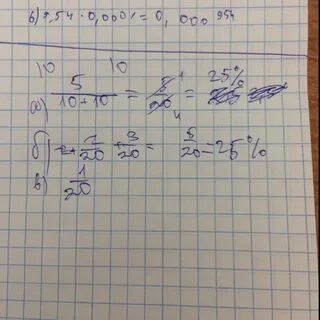 в) 9,54 · 0,0001 = 0,000954
10 10
а) 5/(10+10) = 5/20 = 25%
1
4
б) 2/20 + 3/20 = 5/20 = 25%
в) 1/20